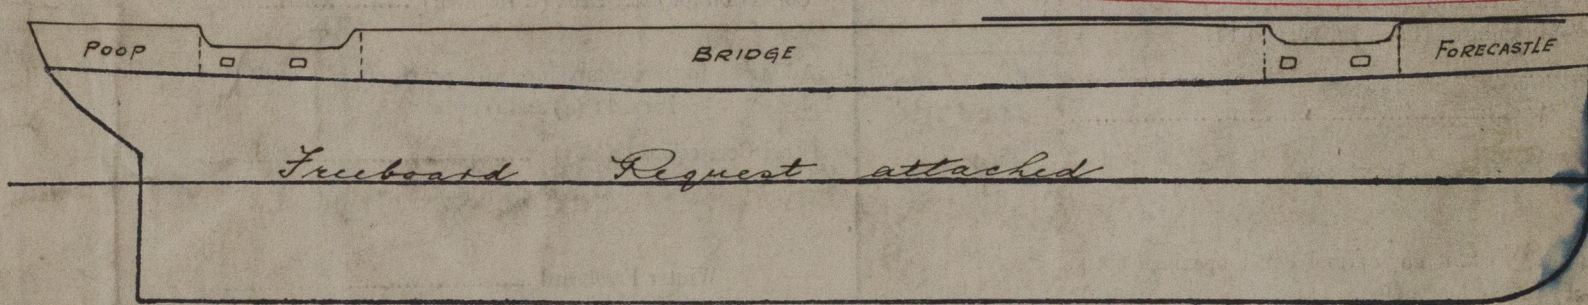 POOP BRIDGE FORECASTLE
Freeboard Request attached